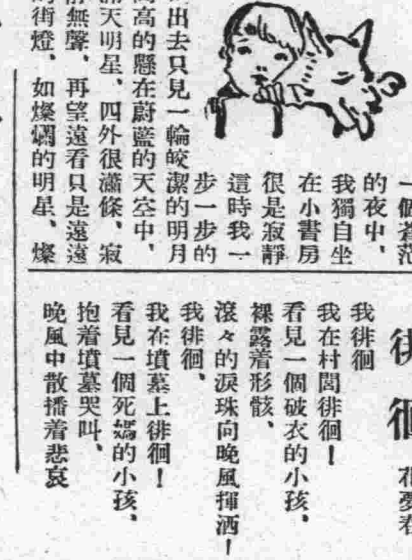 一個蒼茫
的夜中、
我獨自坐
在小書房
很是寂靜
這時我一
步一步的
出去只見一輪皎潔的明月
高的懸在蔚藍的天空中、
天明星、四外很瀟條、寂
無聲、再望遠看只是遠遠
街燈、如燦爛的明星、燦
徘徊
我徘徊
我在村閭徘徊！
看見一個破衣的小孩、
裸露着形骸、
滾々的淚珠向晚風揮洒！
我徘徊、
我在墳墓上徘徊！
看見一個死媽的小孩、
抱着墳墓哭叫、
晚風中散播着悲哀